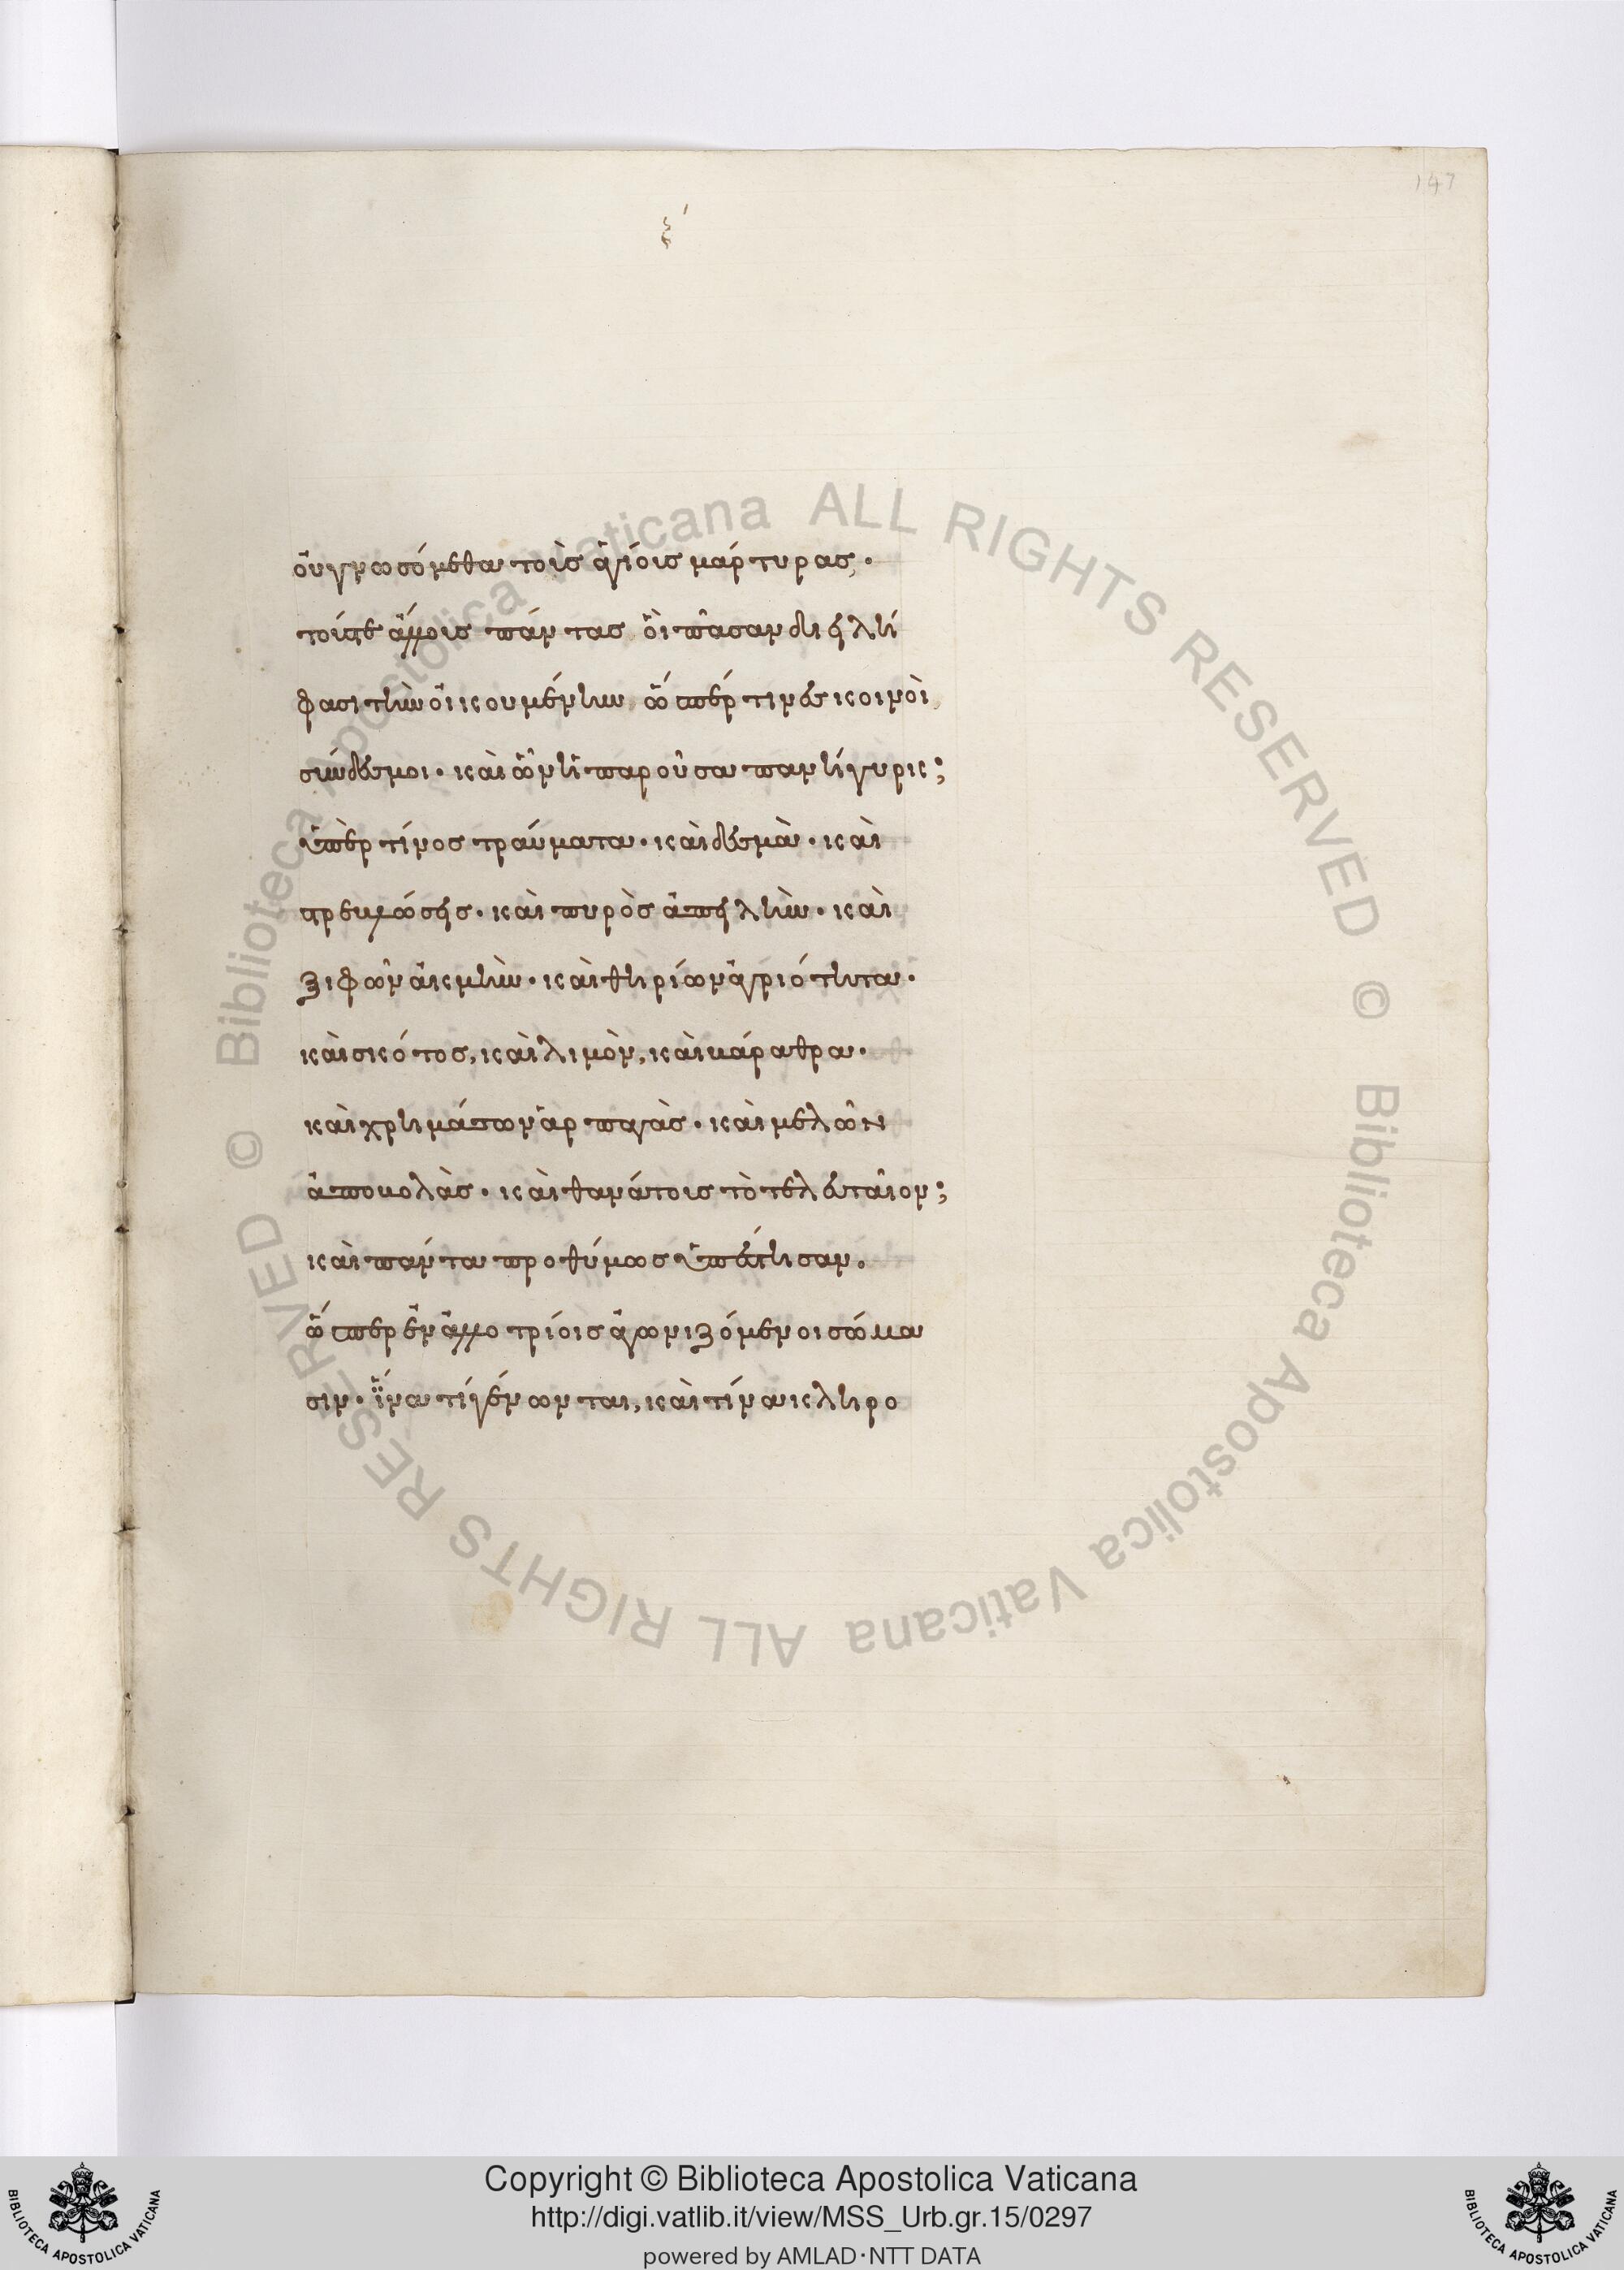 147
ξ´
οὐ γνωσόμεθα τοὶς ἁγίοις μάρτυρας,·
τοίτε ἄλλοις πάντας, οἳ πᾶσαν διειλή
φασι τὴν οἰκουμένην, ὥσπέρ τινες κοινοὶ
σύνδεσμοι· καὶ ὧν ἡ παροῦσα πανήγυρις;
ὑπὲρ τίνος τραύματα· καὶ δεσμὰ· καὶ
στρευλώσεις· καὶ πυρὸς ἀπειλὴν· καὶ
ξιφῶν ἀκμὴν· καὶ θηρίων ἀγριότητα·
καὶ σκότος, καὶ λιμὸν, καὶ βάραθρα·
καὶ χρημάτων ἁρπαγὰς· καὶ μελῶν
ἀποβολὰς· καὶ θανάτοις τὸ τελευταῖον;
καὶ πάντα προθύμως ὑπέστησαν.
ὥσπερ ἐν ἀλλοτρίοις ἀγωνιζόμενοι σώμα
σιν· ἵνα τί γένωνται, καὶ τίνα κληρο
Biblioteca Apostolica Vaticana ALL RIGHTS RESERVED © Biblioteca Apostolica Vaticana ALL RIGHTS RESERVED ©
Copyright © Biblioteca Apostolica Vaticana
http://digi.vatlib.it/view/MSS_Urb.gr.15/0297
powered by AMLAD·NTT DATA
BIBLIOTECA APOSTOLICA VATICANA
BIBLIOTECA APOSTOLICA VATICANA